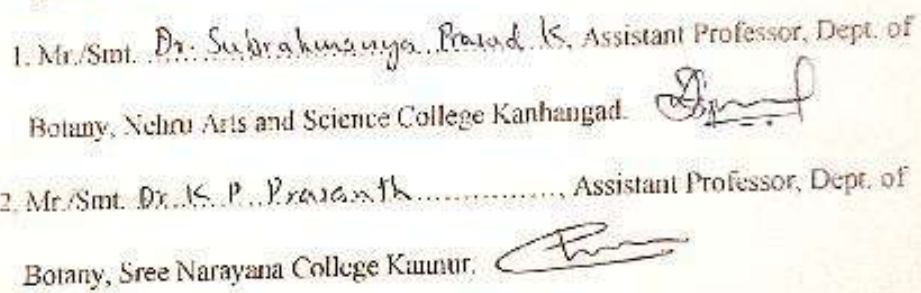 1. Mr./Smt. Dr. Subrahmanya Prasad K, Assistant Professor, Dept. of
Botany, Nehru Arts and Science College Kanhangad.
2. Mr./Smt. Dr. K. P. Prasanth................, Assistant Professor, Dept. of
Botany, Sree Narayana College Kannur.